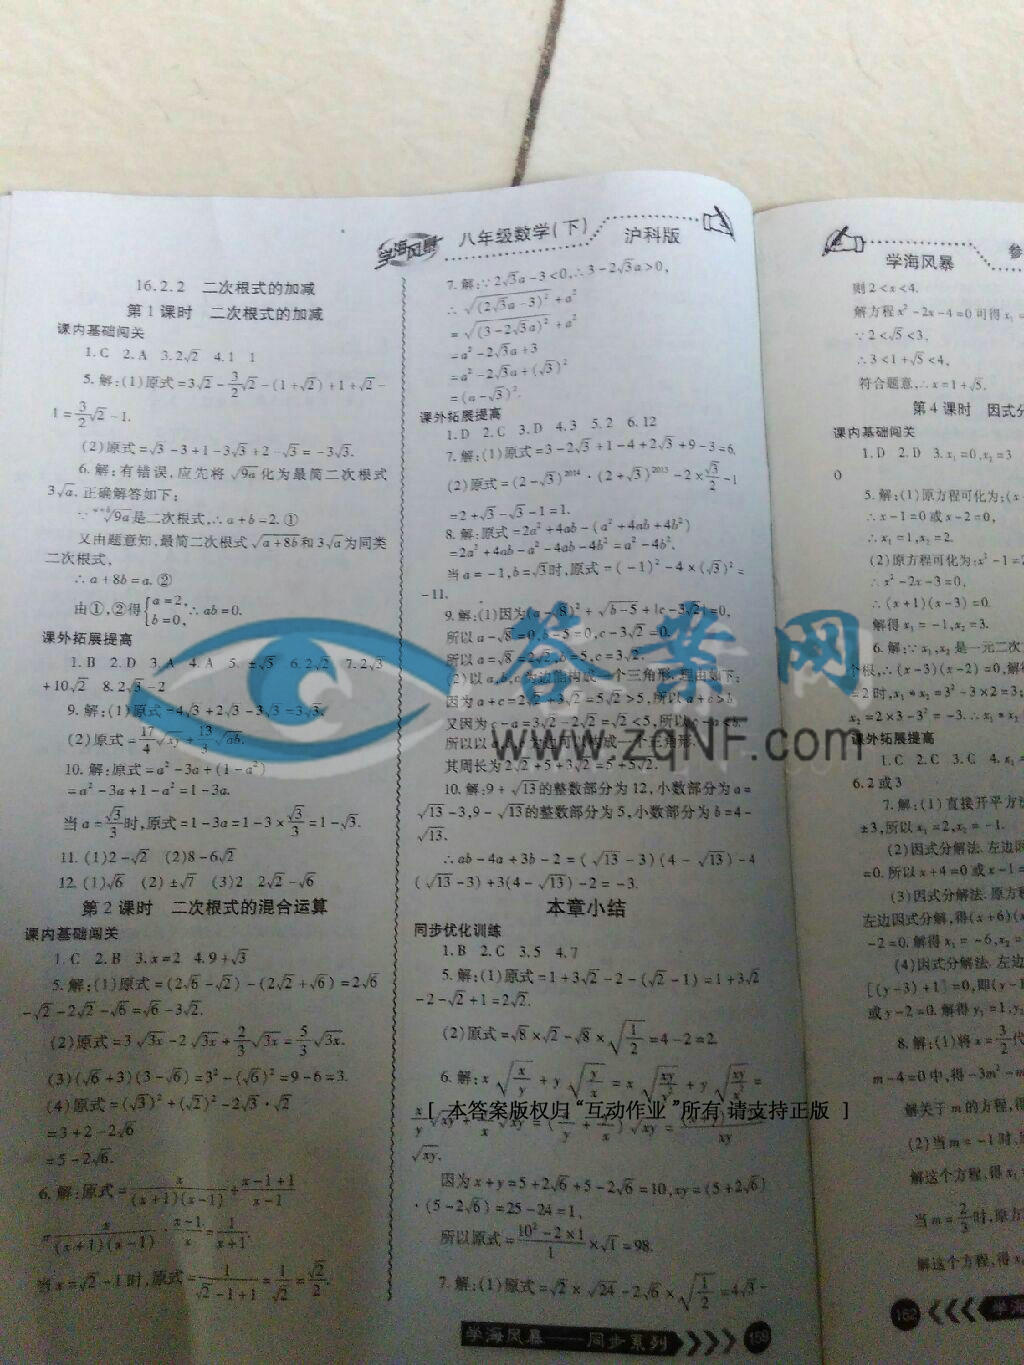 学海风暴 八年级数学(下) 沪科版
16.2.2 二次根式的加减
第1课时 二次根式的加减
课内基础闯关
1.C 2.A 3.2√2 4.1 1
5.解:(1)原式=3√2-3/2√2-(1+√2)+1+√2-
1=3/2√2-1.
(2)原式=√3-3+1-3√3+2-√3=-3√3.
6.解:有错误,应先将√9a化为最简二次根式
3√a.正确解答如下:
是二次根式,∴a+b=2.①
又由题意知,最简二次根式√a+8b和3√a为同类
二次根式,
∴a+8b=a.②
由①,②得{a=2, b=0, ∴ab=0.
课外拓展提高
1.B 2.D 3.A 4.A 5.±√5 6.2√2 7.2√3
+10√2 8.2√3-2
9.解:(1)原式=4√3+2√3-3√3=3√3.
(2)原式=17/4√xy+13/3√ab.
10.解:原式=a²-3a+(1-a²)
=a²-3a+1-a²=1-3a.
当a=√3/3时,原式=1-3a=1-3×√3/3=1-√3.
11.(1)2-√2 (2)8-6√2
12.(1)√6 (2)±√7 (3)2 2√2-√6
第2课时 二次根式的混合运算
课内基础闯关
1.C 2.B 3.x=2 4.9+√3
5.解:(1)原式=(2√6-√2)-(2√2+√6)=2√6
-√2-2√2-√6=√6-3√2.
(2)原式=3√3x-2√3x+2/3√3x=5/3√3x.
(3)(√6+3)(3-√6)=3²-(√6)²=9-6=3.
(4)原式=(√3)²+(√2)²-2√3·√2
=3+2-2√6
=5-2√6.
6.解:原式=x/(x+1)(x-1)÷x-1+1/x-1
=x/(x+1)(x-1)·x-1/x=1/x+1.
当x=√2-1时,原式=1/√2-1+1=1/√2=√2/2.
7.解:∵2√3a-3<0,∴3-2√3a>0,
∴√(2√3a-3)²+a²
=√(3-2√3a)²+a²
=a²-2√3a+3
=a²-2√3a+(√3)²
=(a-√3)².
课外拓展提高
1.D 2.C 3.D 4.3 5.2 6.12
7.解:(1)原式=3-2√3+1-4+2√3+9-3=6.
(2)原式=(2-√3)²⁰¹⁴·(2+√3)²⁰¹³-2×√3/2-1
=2+√3-√3-1=1.
8.解:原式=2a²+4ab-(a²+4ab+4b²)
=2a²+4ab-a²-4ab-4b²=a²-4b².
当a=-1,b=√3时,原式=(-1)²-4×(√3)²=
-11.
9.解:(1)因为(a-√8)²+√b-5+|c-3√2|=0,
所以a-√8=0,b-5=0,c-3√2=0.
所以a=√8=2√2,b=5,c=3√2.
(2)以a,b,c为边能构成一个三角形.理由如下:
因为a+c=2√2+3√2=5√2>5,所以a+c>b.
又因为c-a=3√2-2√2=√2<5,所以c-a<b.
所以以a,b,c为边可以构成一个三角形.
其周长为2√2+5+3√2=5+5√2.
10.解:9+√13的整数部分为12,小数部分为a=
√13-3,9-√13的整数部分为5,小数部分为b=4-
√13.
∴ab-4a+3b-2=(√13-3)(4-√13)-4
(√13-3)+3(4-√13)-2=-3.
本章小结
同步优化训练
1.B 2.C 3.5 4.7
5.解:(1)原式=1+3√2-2-(√2-1)=1+3√2
-2-√2+1=2√2.
(2)原式=√8×√2-√8×√1/2=4-2=2.
6.解:x√x/y+y√y/x=x√xy/y²+y√xy/x²=
[本答案版权归“互动作业”所有 请支持正版]
√xy.
因为x+y=5+2√6+5-2√6=10,xy=(5+2√6)
·(5-2√6)=25-24=1,
所以原式=10²-2×1/1×√1=98.
7.解:(1)原式=√2×√24-2√6×√1/2=4√3-
学海风暴——同步系列 159
学海风暴 参
则2<x<4.
解方程x²-2x-4=0可得x₁=
∵2<√5<3,
∴3<1+√5<4,
符合题意,∴x=1+√5.
第4课时 因式分
课内基础闯关
1.D 2.D 3.x₁=0,x₂=3
0
5.解:(1)原方程可化为:(x-
∴x-1=0或x-2=0,
∴x₁=1,x₂=2.
(2)原方程可化为:x²-1=2
∴x²-2x-3=0,
∴(x+1)(x-3)=0.
解得x₁=-1,x₂=3.
6.解:∵x₁,x₂是一元二次
个根,∴(x-3)(x-2)=0,解得
=2时,x₁*x₂=3²-3×2=3;
x₂=2×3-3²=-3.∴x₁*x₂
课外拓展提高
1.C 2.C 3.C 4.x₁=
6.2或3
7.解:(1)直接开平方法
±3,所以x₁=2,x₂=-1.
(2)因式分解法.左边因
=0.所以x+4=0或x-1=
(3)因式分解法.原方程
左边因式分解,得(x+6)(x
-2=0.解得x₁=-6,x₂=
(4)因式分解法.左边
[(y-3)+1]=0,即(y-1
或y-2=0.解得y₁=1,y₂
8.解:(1)将x=3/2代
m-4=0中,得-3m²-m
解关于m的方程,得
(2)当m=-1时,原
解这个方程,得x₁
当m=2/3时,原方
解这个方程,得x
162 学海
答案网
www.zqNF.com